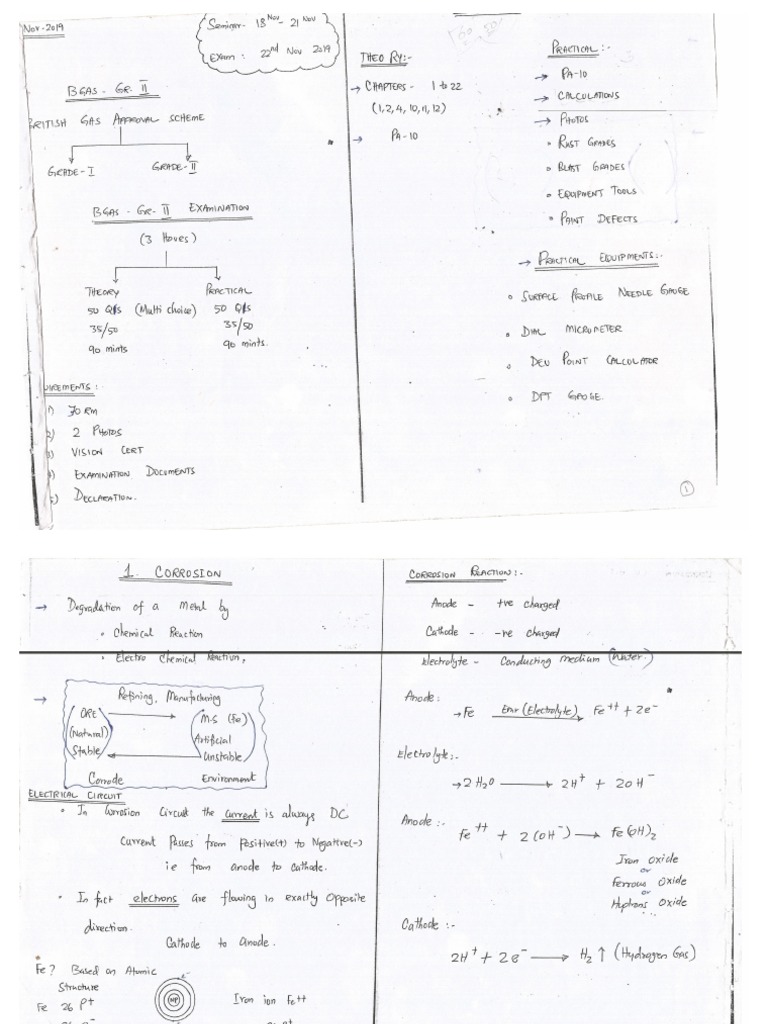 Nov-2019
Seminar- 18 Nov - 21 Nov
Exam : 22nd Nov 2019
BGAS - GR. II
BRITISH GAS APPROVAL SCHEME
GRADE-I
GRADE-II
BGAS - GR. II EXAMINATION
(3 Hours)
THEORY
50 Q/s (Multi choice)
35/50
90 mints
PRACTICAL
50 Q/s
35/50
90 mints.
UIREMENTS :
1) FORM
2) 2 PHOTOS
3) VISION CERT
4) EXAMINATION DOCUMENTS
5) DECLARATION.
THEORY:-
→ CHAPTERS - 1 to 22
(1,2,4,10,11,12)
→ PA-10
PRACTICAL :-
→ PA-10
→ CALCULATIONS
→ PHOTOS
• RUST GRADES
• BLAST GRADES
• EQUIPMENT TOOLS
• PAINT DEFECTS
→ PRACTICAL EQUIPMENTS:-
• SURFACE PROFILE NEEDLE GAUGE
• DIAL MICROMETER
• DEW POINT CALCULATOR
• DPT GAUGE.
1
1. CORROSION
→ Degradation of a Metal by
• Chemical Reaction
• Electro Chemical Reaction,
→ Refining, Manufacturing
ORE
(Natural)
Stable
M.S (Fe)
Artificial
Unstable
Corrode Environment
ELECTRICAL CIRCUIT
• In Corrosion Circuit the current is always DC
Current Passes from Positive(+) to Negative(-)
ie from anode to cathode.
• In fact electrons are flowing in exactly opposite
direction.
Cathode to anode.
Fe? Based on Atomic
Structure
Fe 26 P+
e-
NP
Iron ion Fe++
CORROSION REACTION:-
Anode - +ve charged
Cathode - -ve charged
Electrolyte - Conducting medium (water.)
Anode:
→ Fe (Electrolyte) Fe++ + 2e-
Electrolyte:-
→ 2 H2O → 2H+ + 2OH-
Anode:-
Fe++ + 2(OH-) → Fe(OH)2
Iron Oxide
or
Ferrous Oxide
or
Oxide
Cathode :-
2H+ + 2e- → H2 ↑ (Hydrogen Gas)